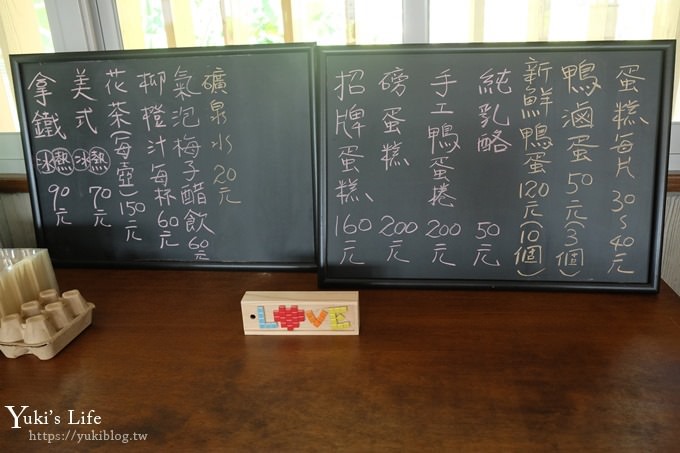 礦泉水 20元
氣泡梅子醋飲 60元
柳橙汁每杯 60元
花茶(每壺) 150元
美式 冰 熱 70元
拿鐵 冰 熱 90元
蛋糕每片 30~40元
鴨滷蛋 50元(3個)
新鮮鴨蛋 120元(10個)
純乳酪 50元
手工鴨蛋捲 200元
磅蛋糕 200元
招牌蛋糕 160元
LOVE
Yuki's Life
https://yukiblog.tw